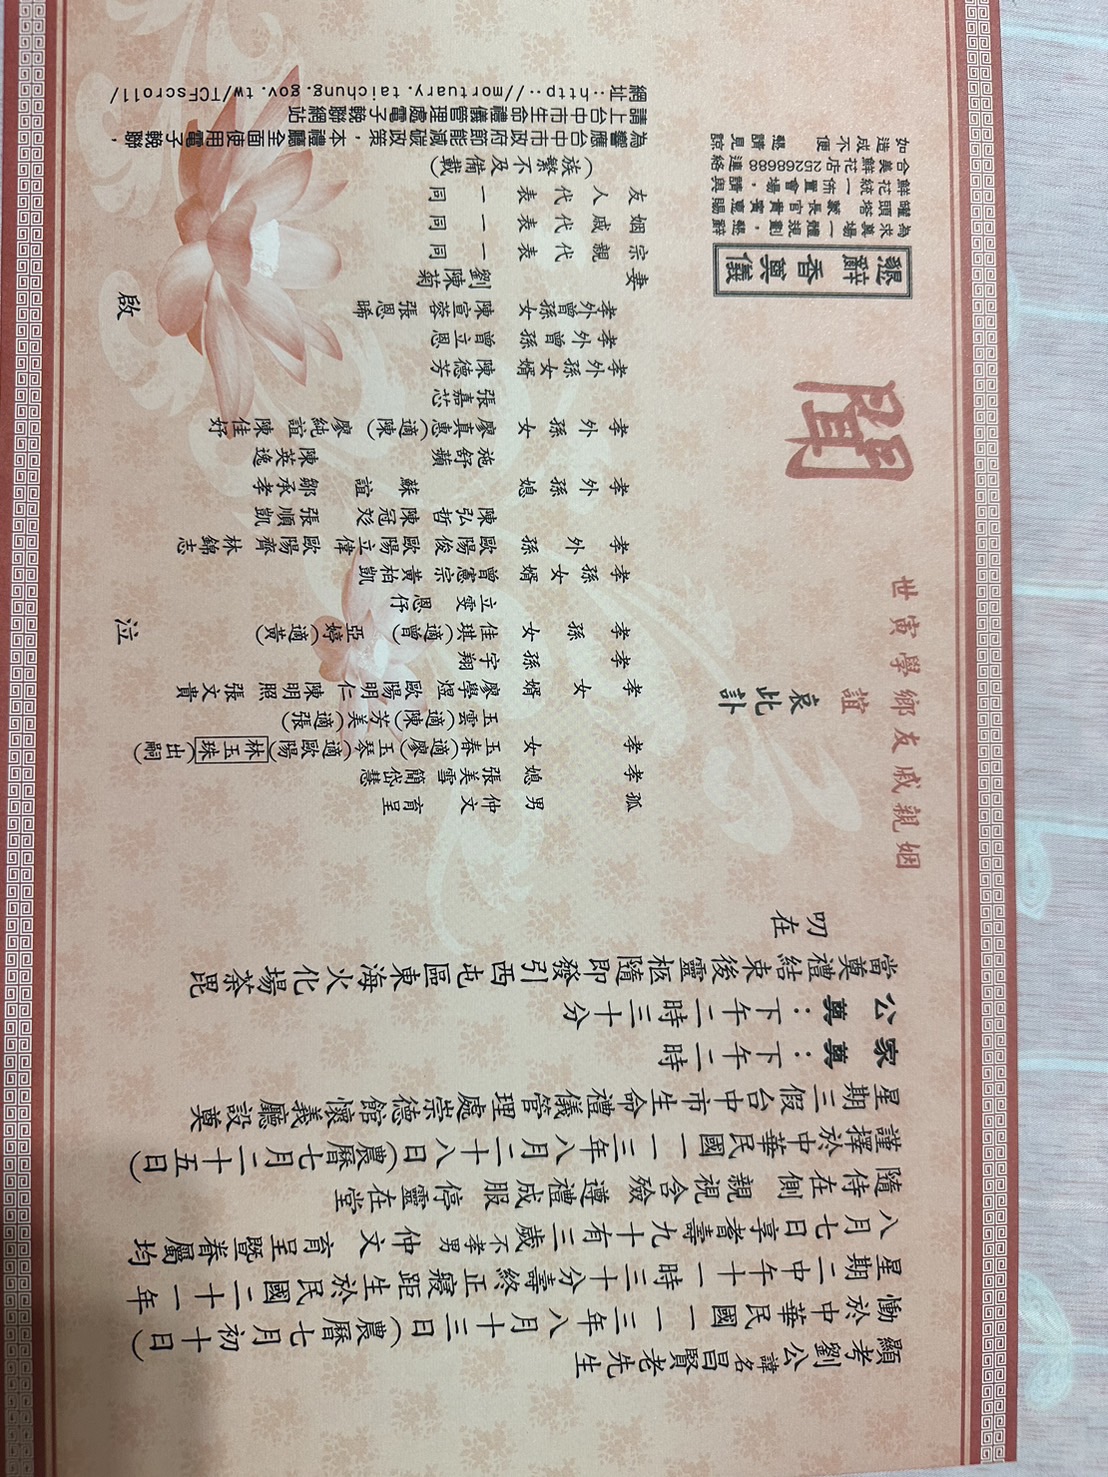 顯考劉公諱名昌賢老先生
慟於中華民國一一三年八月十三日(農曆七月初十日)
星期二中午十一時三十分壽終正寢距生於民國二十一年
八月七日享耆壽九十有三歲不孝男仲文 育呈暨眷屬均
隨侍在側 親視含殮 遵禮成服 停靈在堂
謹擇於中華民國一一三年八月二十八日(農曆七月二十五日)
星期三假台中市生命禮儀管理處崇德館懷義廳設奠
家奠：下午二時
公奠：下午二時三十分
當奠禮結束後靈柩隨即發引西屯區東海火化場荼毘
叨在
世寅學鄉友戚親姻
誼
哀此訃
聞
懇辭香奠儀
為求奠場一體規劃，懇辭
罐頭塔 籲長官貴賓惠賜
鮮花統一佈置會場，請與
合美鮮花店25268688 連絡
如造成不便 懇請見諒
孤男 仲文 育呈
孝媳 張美雪 簡岱慧
孝女 玉春(適廖)玉琴(適歐陽)林玉珠(出嗣)
玉雲(適陳)芳美(適張)
孝女婿 廖學煜 歐陽明仁 陳明照 張文貴
孝孫 宇翔
孝孫女 佳琪(適曾)亞婷(適黃)
立雯 恩伃
孝孫女婿 曾憲宗 黃柏凱
孝外孫 歐陽俊 歐陽立偉 歐陽齊 林錦志
陳弘哲 陳冠彣 張順凱
孝外孫媳 蘇誼 鄒承孝
施舒蘋 陳英逸
孝外孫女 廖真惠(適陳)廖純誼 陳佳妤
張嘉芯
孝外孫女婿 陳德芳
孝外曾孫 曾立恩
孝外曾孫女 陳宣蓉 張恩晞
妻 劉陳菊
宗親代表一同
姻戚代表一同
友人代表一同
(族繁不及備載)
泣啟
為響應台中市政府節能減碳政策，本禮廳全面使用電子輓聯，
請上台中市生命禮儀管理處電子輓聯網站
網址：http://mortuary.taichung.gov.tw/TCFscroll/